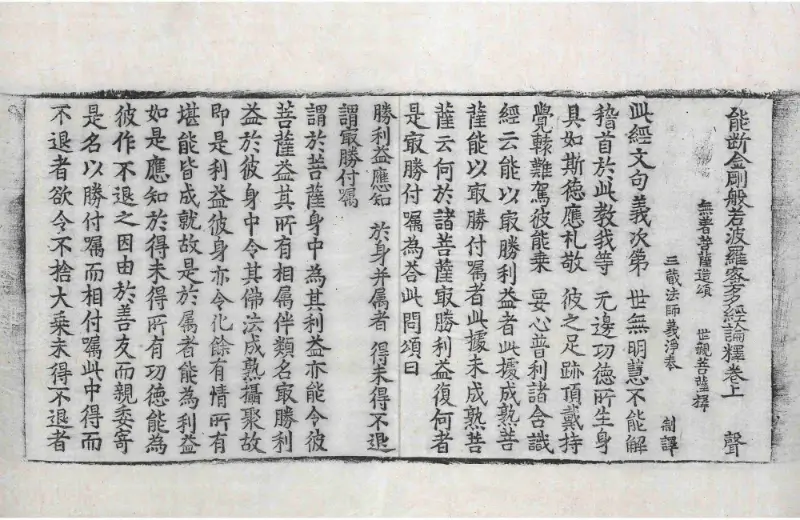 能断金剛般若波羅蜜多經論釋卷上 聲
無著菩薩造頌 世親菩薩釋
三藏法師義淨奉 制譯
此經文句義次第 世無明慧不能解
稽首於此教我等 无邊功德所生身
具如斯德應礼敬 彼之足跡頂戴持
覺轅難駕彼能乗 要心普利諸含識
經云能以㝡勝利益者此據成熟菩
薩能以㝡勝付囑者此據未成熟菩
薩云何於諸菩薩㝡勝利益復何者
是㝡勝付囑為荅此問頌曰
勝利益應知 於身并属者 得未得不退
謂㝡勝付囑
謂於菩薩身中為其利益亦能令彼
菩薩益其所有相属伴類名㝡勝利
益於彼身中令其佛法成熟攝聚故
即是利益彼身亦令化餘有情所有
堪能皆成就故是於属者能為利益
如是應知於得未得所有功德能為
彼作不退之因由於善友而親委寄
是名以勝付囑而相付囑此中得而
不退者欲令不捨大乗未得不退者